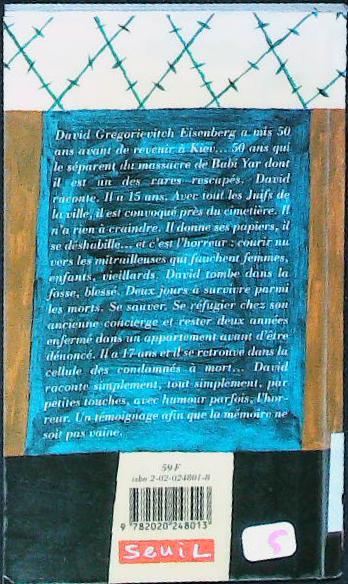 David Gregorievitch Eisenberg a mis 50
ans avant de revenir à Kiev... 50 ans qui
le séparent du massacre de Babi Yar dont
il est un des rares rescapés. David
raconte. Il a 15 ans. Avec tout les Juifs de
la ville, il est convoqué près du cimetière. Il
n'a rien à craindre. Il donne ses papiers, il
se déshabille... et c'est l'horreur : courir nu
vers les mitrailleuses qui fauchent femmes,
enfants, vieillards. David tombe dans la
fosse, blessé. Deux jours à survivre parmi
les morts. Se sauver. Se réfugier chez son
ancienne concierge et rester deux années
enfermé dans un appartement avant d'être
dénoncé. Il a 17 ans et il se retrouve dans la
cellule des condamnés à mort... David
raconte simplement, tout simplement, par
petites touches, avec humour parfois, l'hor-
reur. Un témoignage afin que la mémoire ne
soit pas vaine.
59 F
isbn 2-02-024801-8
9 782020 248013
SEUIL